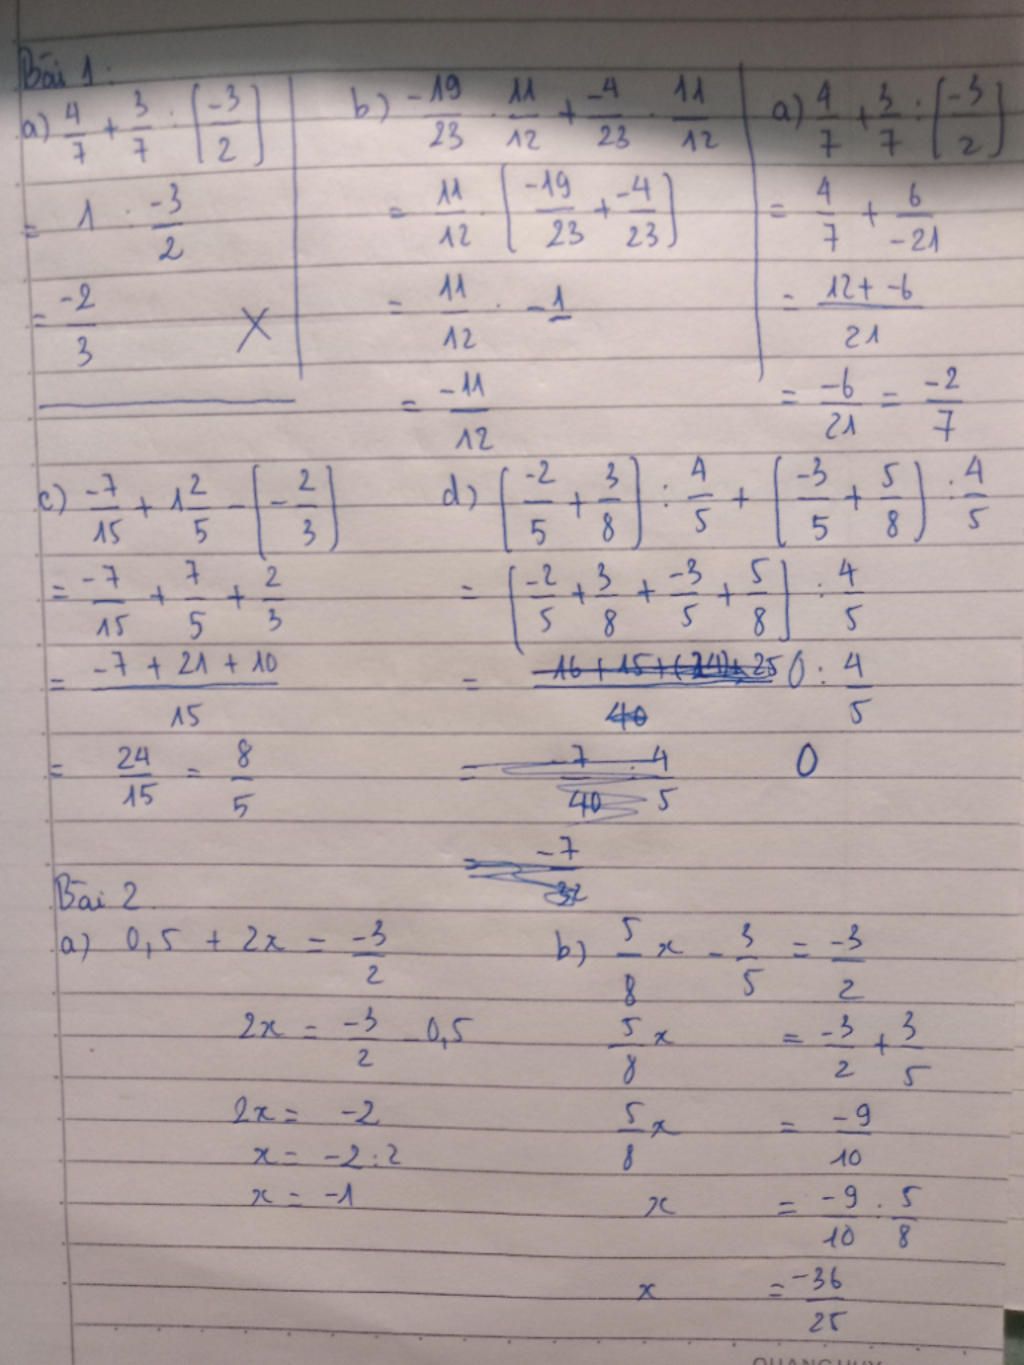 Bài 1:
a) 4/7 + 3/7 : (-3/2)
= 1 : -3/2
= -2/3 X
b) -19/23 . 11/12 + -4/23 . 11/12
= 11/12 . (-19/23 + -4/23)
= 11/12 . -1
= -11/12
a) 4/7 + 3/7 : (-3/2)
= 4/7 + 6/-21
= 12 + -6 / 21
= -6/21 = -2/7
c) -7/15 + 1 2/5 - (-2/3)
= -7/15 + 7/5 + 2/3
= -7 + 21 + 10 / 15
= 24/15 = 8/5
d) (-2/5 + 3/8) : 4/5 + (-3/5 + 5/8) : 4/5
= (-2/5 + 3/8 + -3/5 + 5/8) : 4/5
= 0 : 4/5
0
Bài 2
a) 0,5 + 2x = -3/2
2x = -3/2 - 0,5
2x = -2
x = -2 : 2
x = -1
b) 5/8 x - 3/5 = -3/2
5/8 x = -3/2 + 3/5
5/8 x = -9/10
x = -9/10 : 5/8
x = -36/25